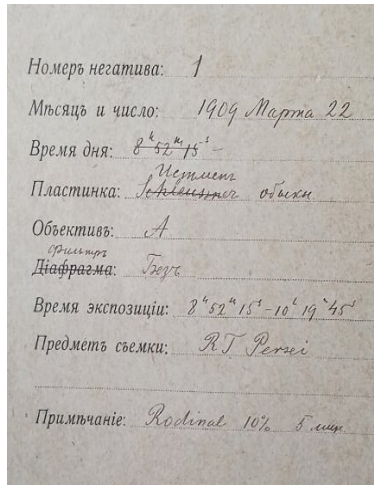 Номеръ негатива: 1
Мѣсяцъ и число: 1909 Марта 22
Время дня: 8ч 52м 15s –
Истмен
Пластинка: Schleussner обыкн
Объективъ: А
Фильтръ
Діафрагма: Безъ
Время экспозиціи: 8ч 52м 15s – 10ч 19м 45s
Предметъ съемки: RT Persei
Примѣчаніе: Rodinal 10% 5 мин